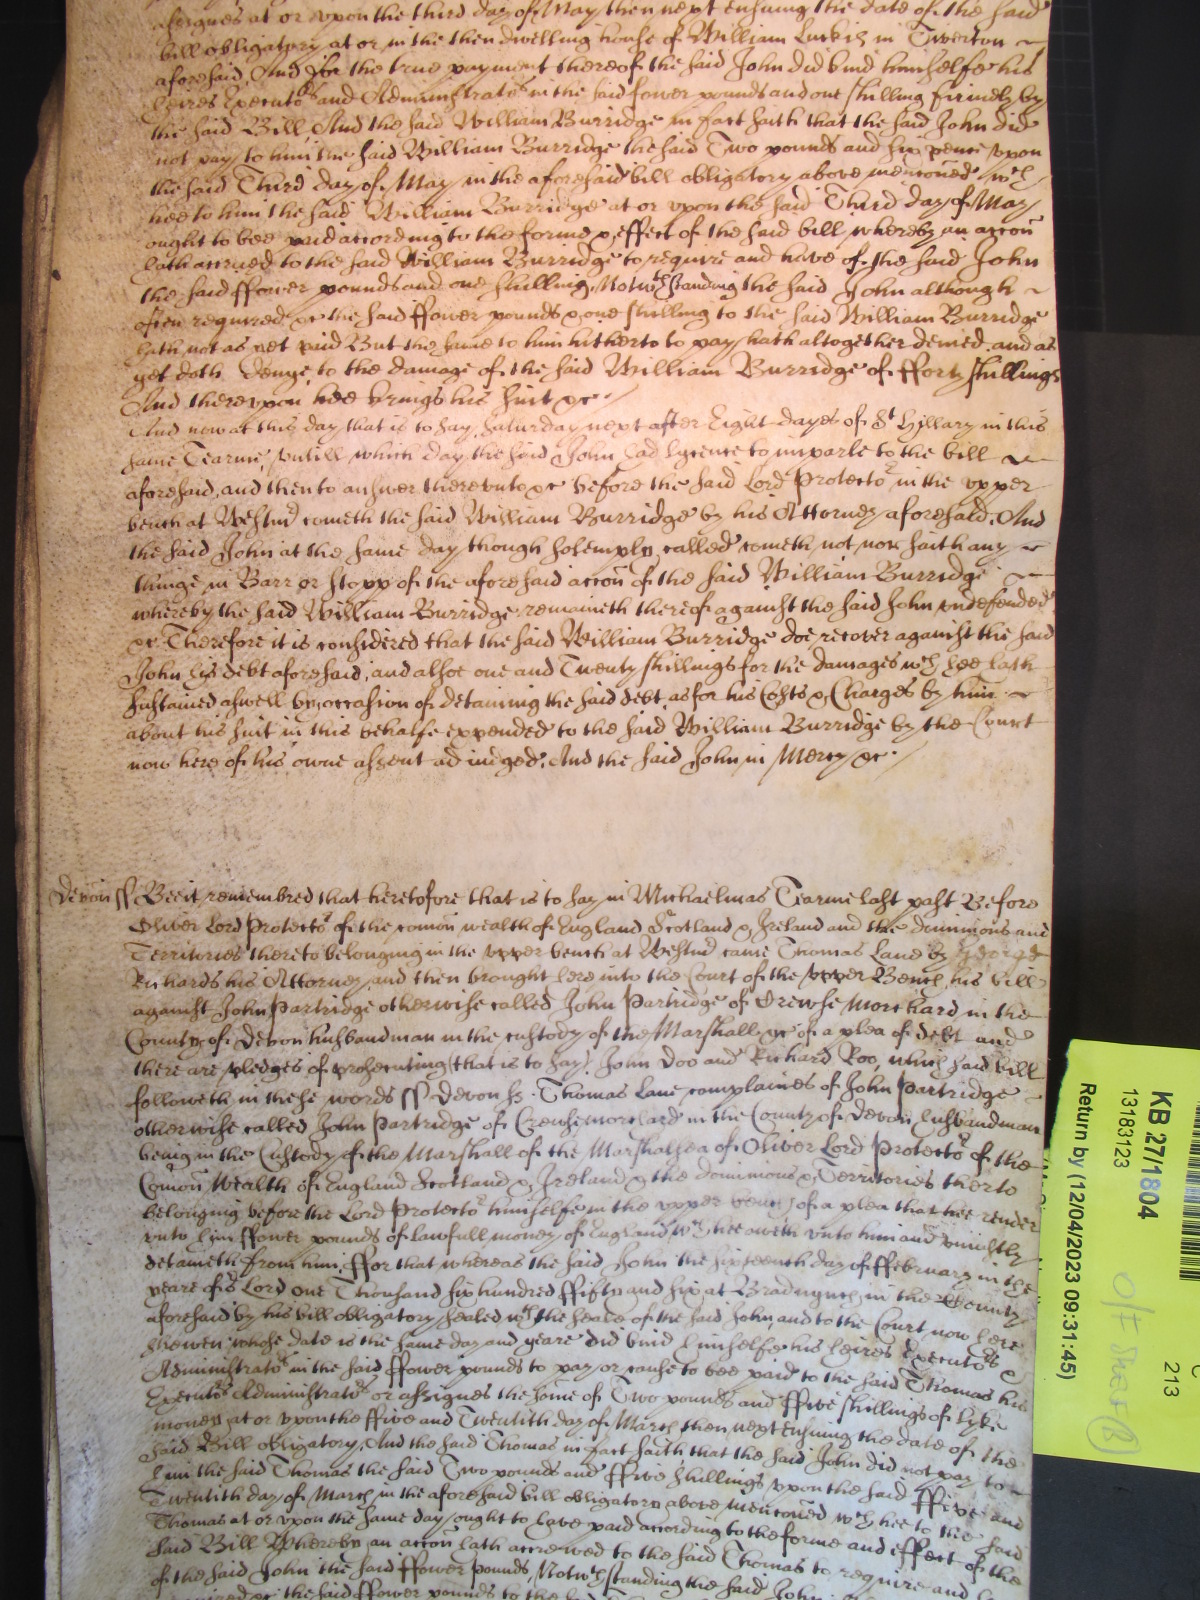 assignes at or vpon the third day of May then next ensuing the date of the said
bill obligatory at or in the then dwelling house of William Luckis in Twerton
aforesaid, And for the true payment thereof the said John did bind himselfe his
heires Executors and Administrators in the said fower pounds and one shilling firmely by
the said Bill And the said William Burridge in fact saith that the said John did
not pay to him the said William Burridge the said Two pounds and six pence vpon
the said Third day of May in the aforesaid bill obligatory above menconed wch
hee to him the said William Burridge at or vpon the said Third day of May
ought to bee paid according to the forme & effect of the said bill whereby an accon
hath accrued to the said William Burridge to require and have of the said John
the said ffower pounds and one shilling, Notwthstanding the said John although
often required &c the said ffower pounds & one shilling to the said William Burridge
hath not as yet paid But the same to him hitherto to pay hath altogether denied and as
yet doth denye to the damage of the said William Burridge of fforty shillings
And therevpon hee brings his suit &c
And now at this day that is to say, Saturday next after Eight dayes of St Hillary in this
same Tearme, vntill which day the said John had lycence to imparle to the bill
aforesaid, and then to answer therevnto &c before the said Lord Protector in the vpper
bench at Westmr cometh the said William Burridge by his Attorney aforesaid, And
the said John at the same day though solemply called cometh not nor saith any
thinge in Barr or stopp of the aforesaid accon of the said William Burridge
whereby the said William Burridge remaineth thereof against the said John vndefended
&c Therefore it is considered that the said William Burridge doe recover against the said
John his debt aforesaid, and alsoe one and Twenty shillings for the damages wch hee hath
sustained aswell by occasion of detaining the said debt, as for his Costs & Charges by him
about his suit in this behalfe expended to the said William Burridge by the Court
now here of his owne assent adiudged, And the said John in Mercy &c
Devon ss Bee it remembred that heretofore that is to say in Michaelmas Tearme last past Before
Oliver Lord Protector of the comon wealth of England Scotland & Ireland and the dominions and
Territories thereto belonging in the vpper bench at Westmr came Thomas Lane by George
Richards his Attorney, and then brought here into the Court of the vpper Bench, his bill
against John Partridge otherwise called John Partridge of Crewse Morchard in the
County of Devon husbandman in the custody of the Marshall &c of a plea of debt and
there are pledges of prosecuting (that is to say) John Doo and Richard Roo, which said bill
followeth in these words ss Devon ss. Thomas Lane complaines of John Partridge
otherwise called John Partridge of Crewsemorchard in the County of Devon husbandman
being in the Custody of the Marshall of the Marshalsea of Oliver Lord Protector of the
Comon Wealth of England Scotland & Ireland & the dominions & Territories therto
belonging before the Lord Protector himselfe in the vpper bench, of a plea that hee render
vnto him ffower pounds of lawfull money of England wch hee oweth vnto him and vniustly
detaineth from him, ffor that whereas the said John the sixteenth day of ffebruary in the
yeare of or Lord one Thousand six hundred ffifty and six at Bradninch in the County
aforesaid by his bill obligatory sealed wth the seale of the said John, and to the Court now here
shewen whose date is the same day and yeare did bind himselfe his heires Executors &
Administrators in the said ffower pounds to pay or cause to bee paid to the said Thomas his
Executors Administrators or assignes the some of Two pounds and ffive shillings of lyke
money at or vpon the ffive and Twentith day of March then next ensuing the date of the
said Bill obligatory, And the said Thomas in fact saith that the said John did not pay to
him the said Thomas the said Two pounds and ffive shillings vpon the said ffive and
Twentith day of March in the aforesaid bill obligatory above menconed wch hee to the said
Thomas at or vpon the same day ought to have paid according to the forme and effect of the
said Bill Whereby an accon hath accrewed to the said Thomas to require and
of the said John the said ffower pounds, Notwthstanding the said John
the said ffower pounds to the
KB 27/1804
13183123
Return by (12/04/2023 09:31:45)
213